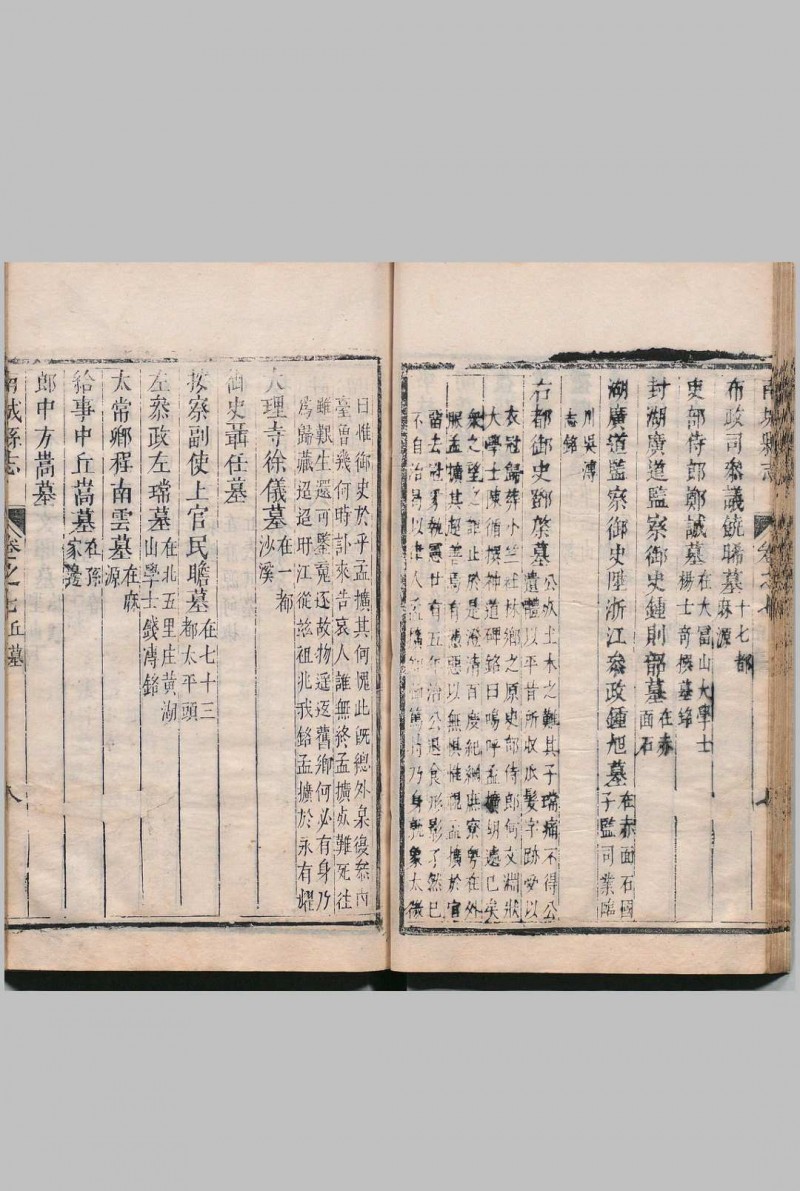 南城縣志 卷之七
布政司叅議饒睎墓 十七都
麻源
吏部侍郎鄭誠墓 在大冨山大學士
楊士竒撰墓銘
封湖廣道監察御史鍾則郚墓 在赤
面石
湖廣道監察御史陞浙江叅政鍾旭墓 在赤面石國
子監司業臨
川吳溥
書銘
右都御史鄧棨墓 公次土木之難其子瑺痛不得公
遺體以平昔所收爪髮字跡受以
衣冠歸葬小竺社林鄉之原吏部侍郎何文淵狀
大學士陳循撰神道碑銘曰嗚呼孟擴朝遠已矣
衆之望之誰止於是澄清百度紀綱庶寮粤在外
服孟擴其超善焉有惡以無惧惟視孟擴於官
留去冠豸執憲廿有五年治公退食形影了然已
不自治曷以律人孟擴 乃身就象太微
曰惟御史於乎孟擴其何愧此旣總外臬復叅內
臺曽幾何時訃來告哀人誰無終孟擴㱕難死往
雖艱生還可鑒寃逐故物逞返舊鄉何必有身乃
爲歸藏迢迢盱江從兹祖兆我銘孟擴於永有燿
大理寺徐儀墓 在一都
沙溪
御史聶任墓
按察副使上官民瞻墓 在七十三
都太平頭
左叅政左瑺墓 在北五里庄黃湖
山學士錢溥銘
太常卿程南雲墓 在麻
源
給事中丘蒿墓 在孫
家邊
郎中方蒿墓
南城縣志 卷之七丘墓 八